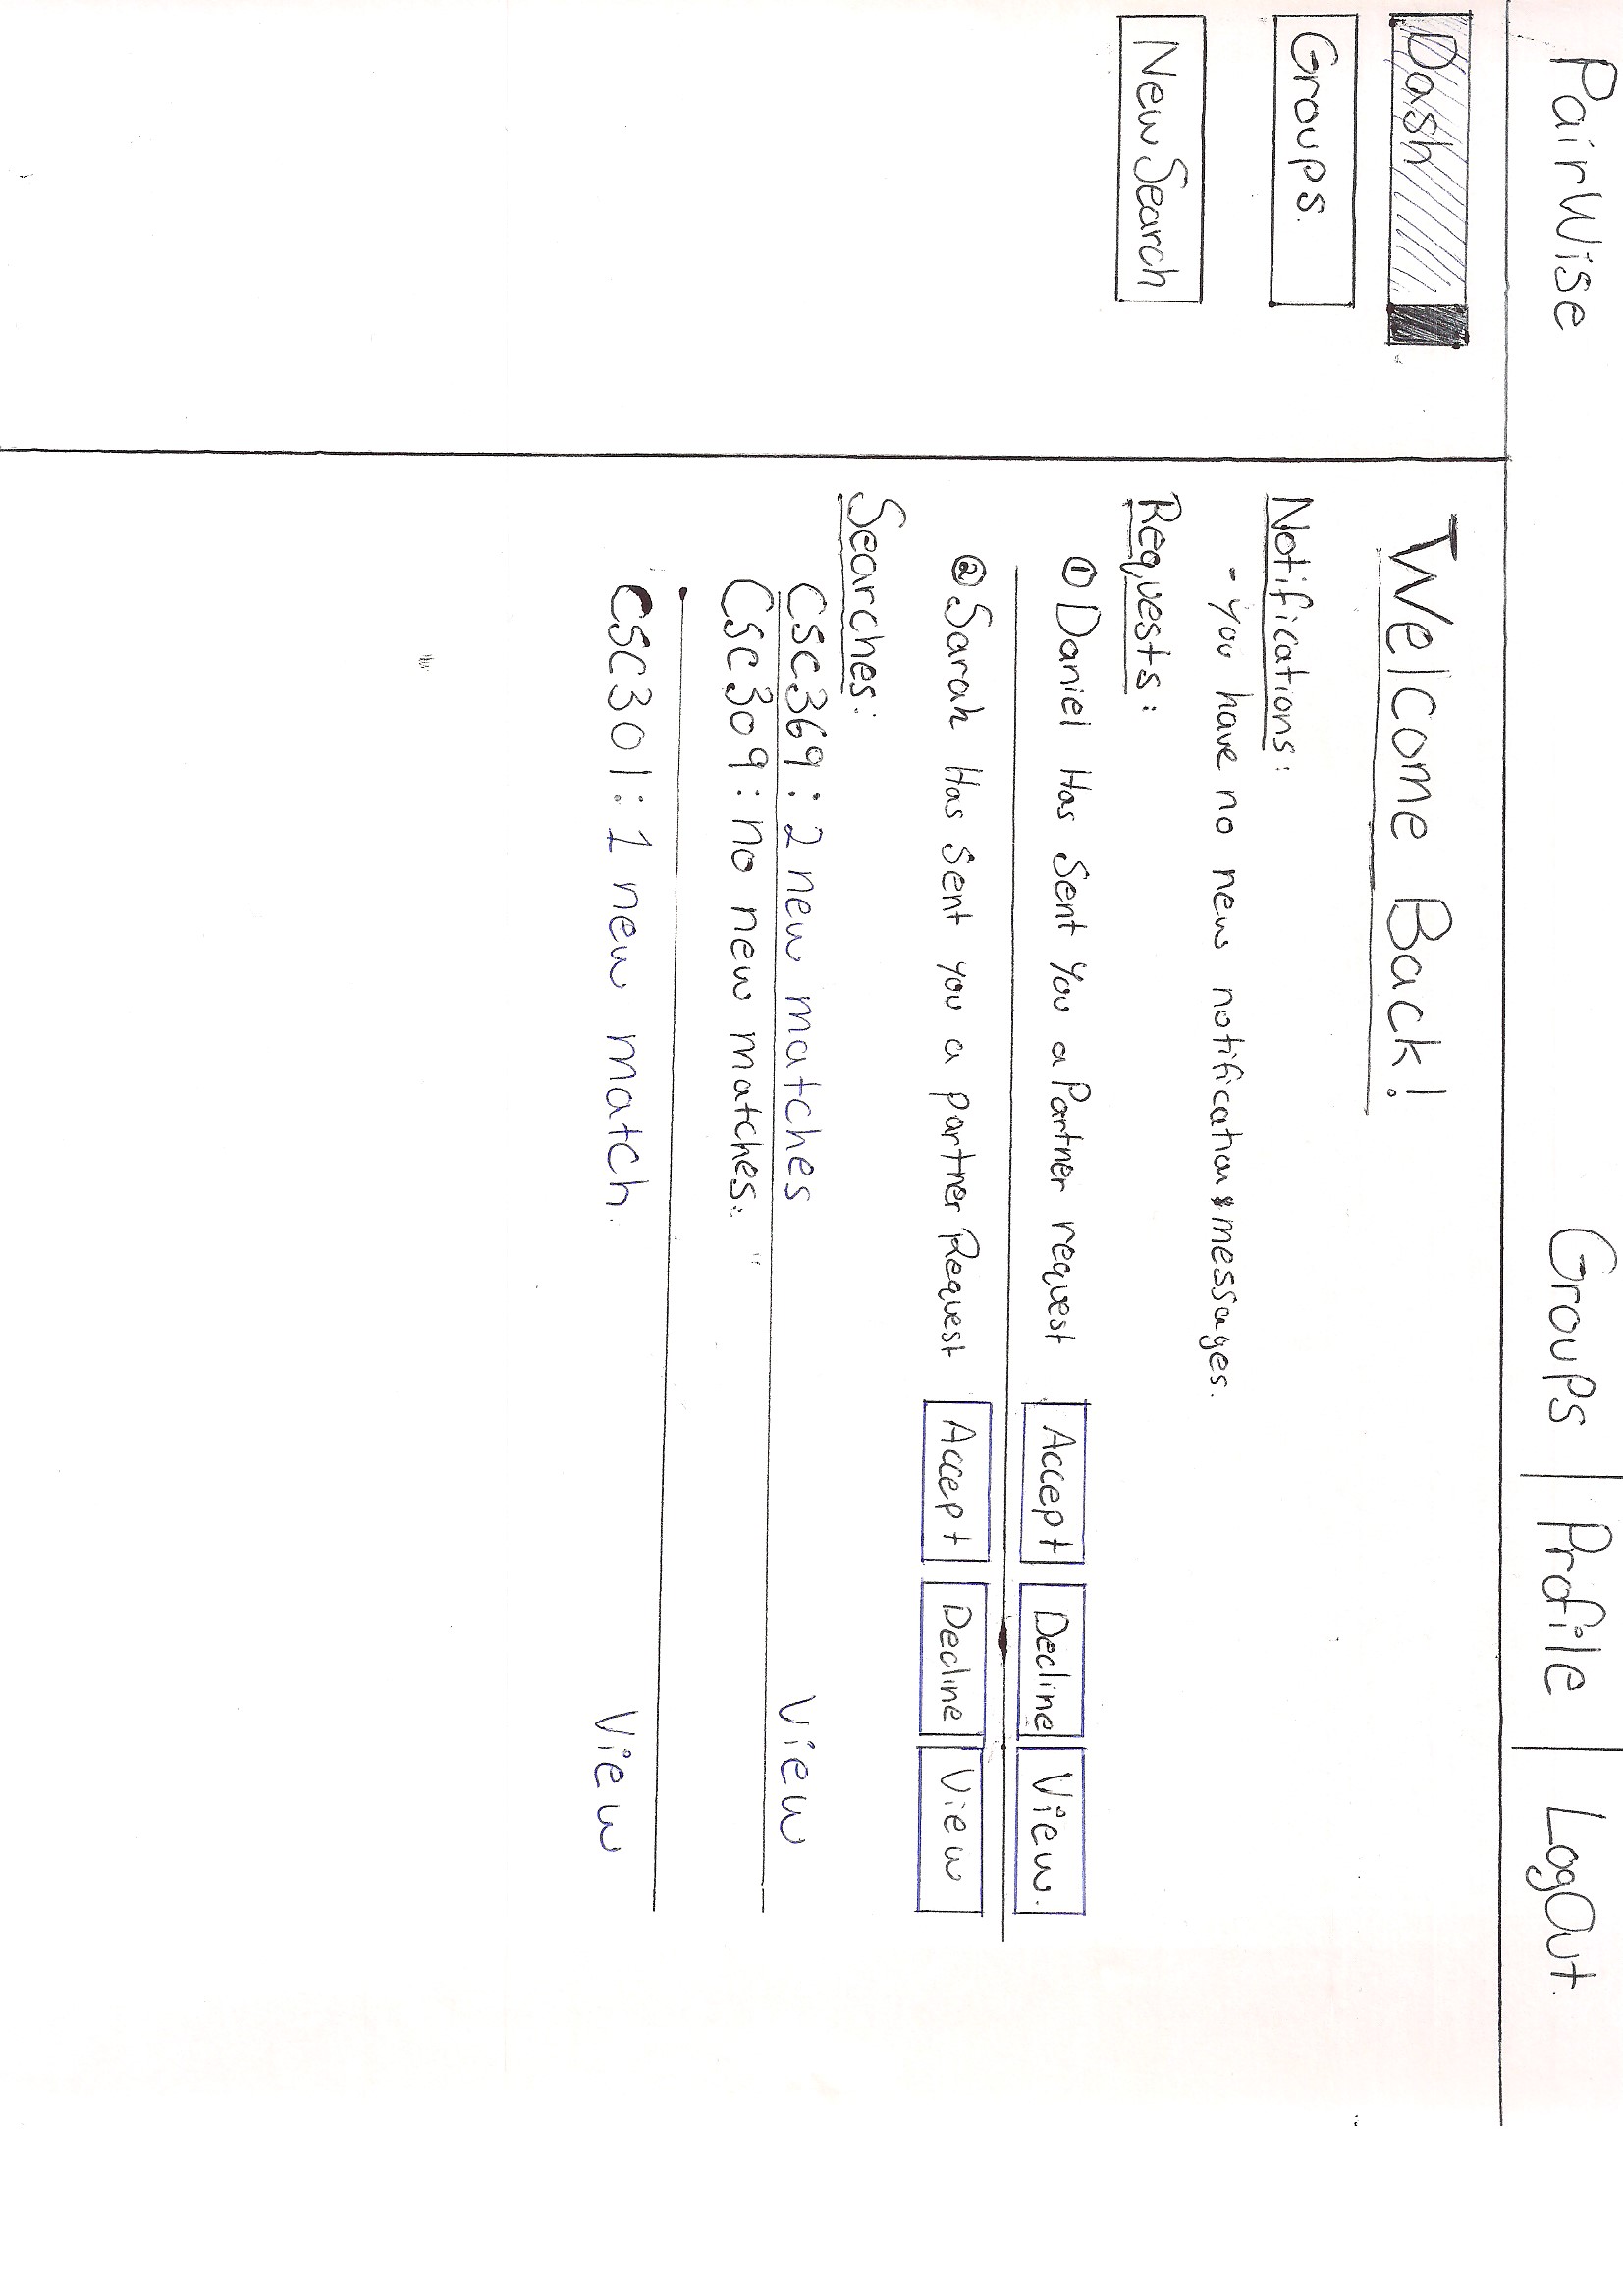 PairWise
Groups | Profile | LogOut.
Dash
Groups.
New Search
Welcome Back!
Notifications:
- You have no new notification & messages.
Requests:
① Daniel Has Sent You a Partner request Accept Decline View.
② Sarah Has Sent you a partner Request Accept Decline View
Searches:
CSC369: 2 new matches View
CSC309: no new matches.
CSC301: 1 new match. View